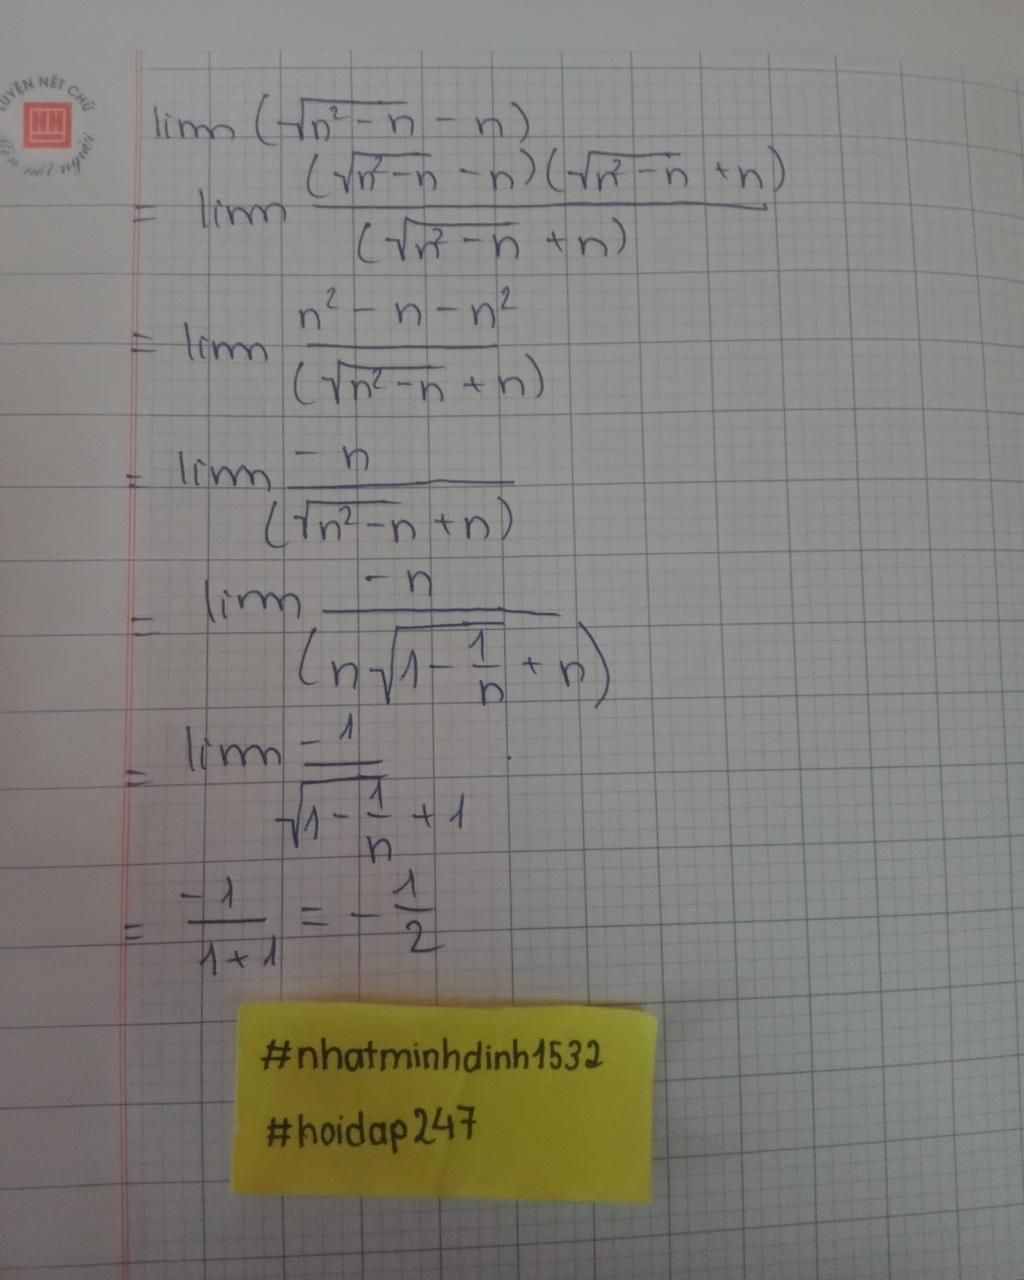 LUYỆN NÉT CHỮ
HN
Rèn nết người
lim (√(n² - n) - n)
= lim ((√(n² - n) - n)(√(n² - n) + n)) / (√(n² - n) + n)
= lim (n² - n - n²) / (√(n² - n) + n)
= lim (-n) / (√(n² - n) + n)
= lim (-n) / (n√(1 - 1/n) + n)
= lim (-1) / (√(1 - 1/n) + 1)
= (-1) / (1 + 1) = - 1/2
#nhatminhdinh1532
#hoidap247